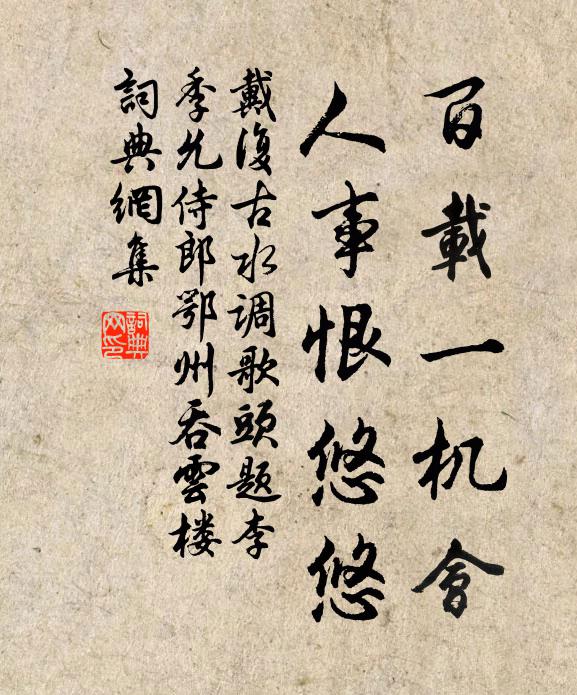 百載一机會
人事恨悠悠
戴復古水调歌頭题李
季允侍郎鄂州吞雲楼
詞典網集
詞典
网印